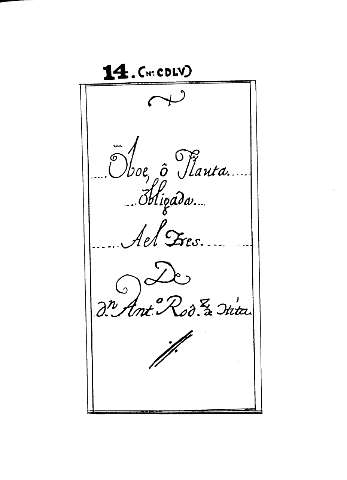 14. (Nº: CDLV)
Oboe, ô Flauta
obligada
Ael Tres.
De
dⁿ. Antº. Rodᶻ. de Hita.